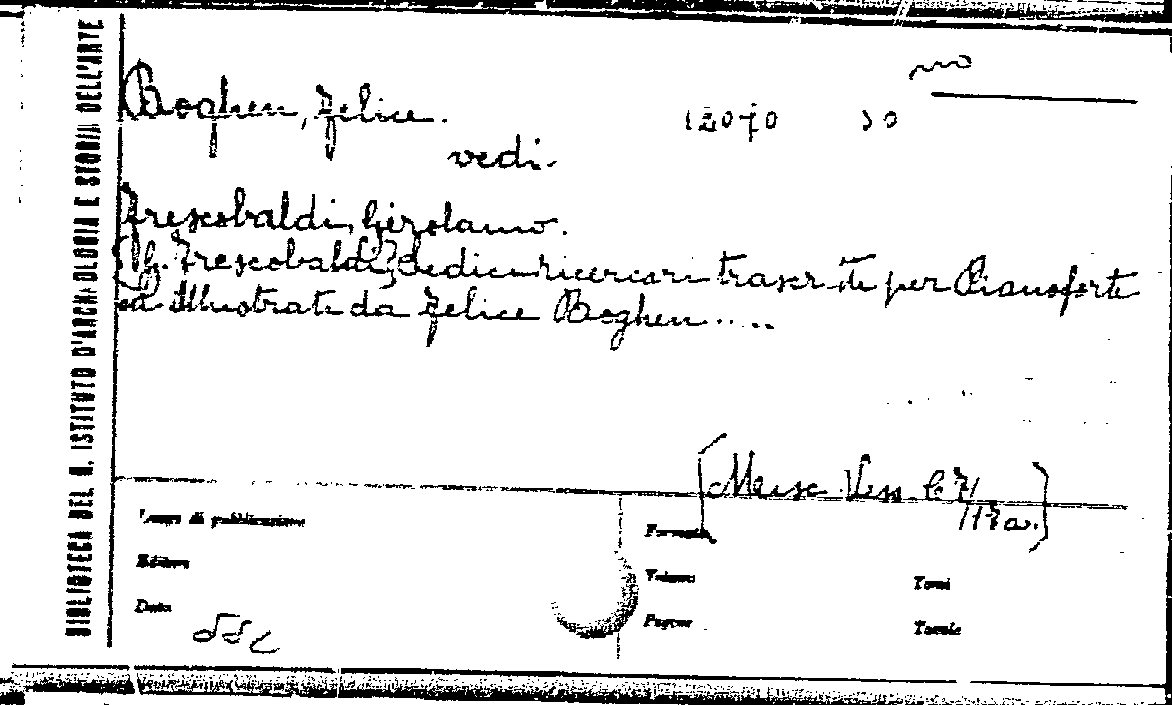 BIBLIOTECA DEL R. ISTITUTO D'ARCHEOLOGIA E STORIA DELL'ARTE
Boghen, Felice.
vedi.
Frescobaldi, Girolamo.
G. Frescobaldi, Sedici ricercari trascritti per Pianoforte
ed illustrati da Felice Boghen.....
[Misc. Vess.
117a.]
Luogo di pubblicazione
Formato
Editore
Volume
Tomi
Data
Pagine
Tavole